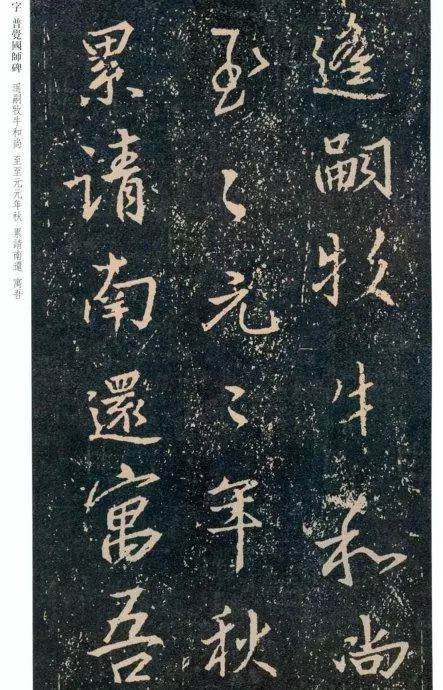 遙嗣牧牛和尚
至〻元〻年秋
累請南還寓吾
字 普覺國師碑 遙嗣牧牛和尚 至至元元年秋 累請南還 寓吾